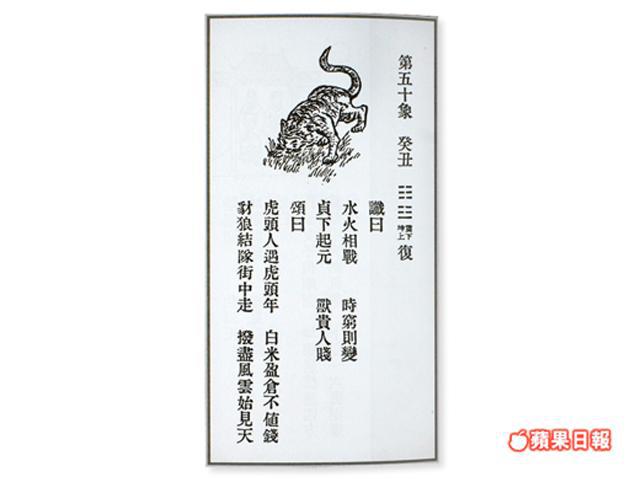 第五十象 癸丑 ䷗ 震下坤上 復
讖曰
水火相戰 時窮則變
貞下起元 獸貴人賤
頌曰
虎頭人遇虎頭年 白米盈倉不值錢
豺狼結隊街中走 撥盡風雲始見天
蘋果日報